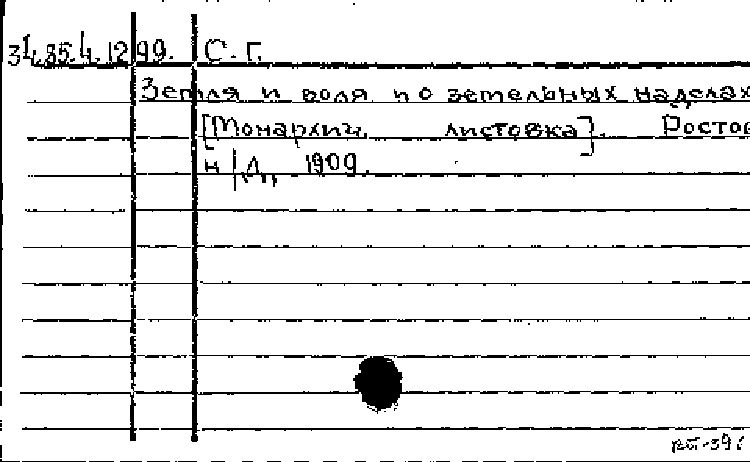 34.85.4.1299. С. Г.
Земля и воля по земельных наделах
[Монархич. листовка]. Ростов
н/Д., 1909.